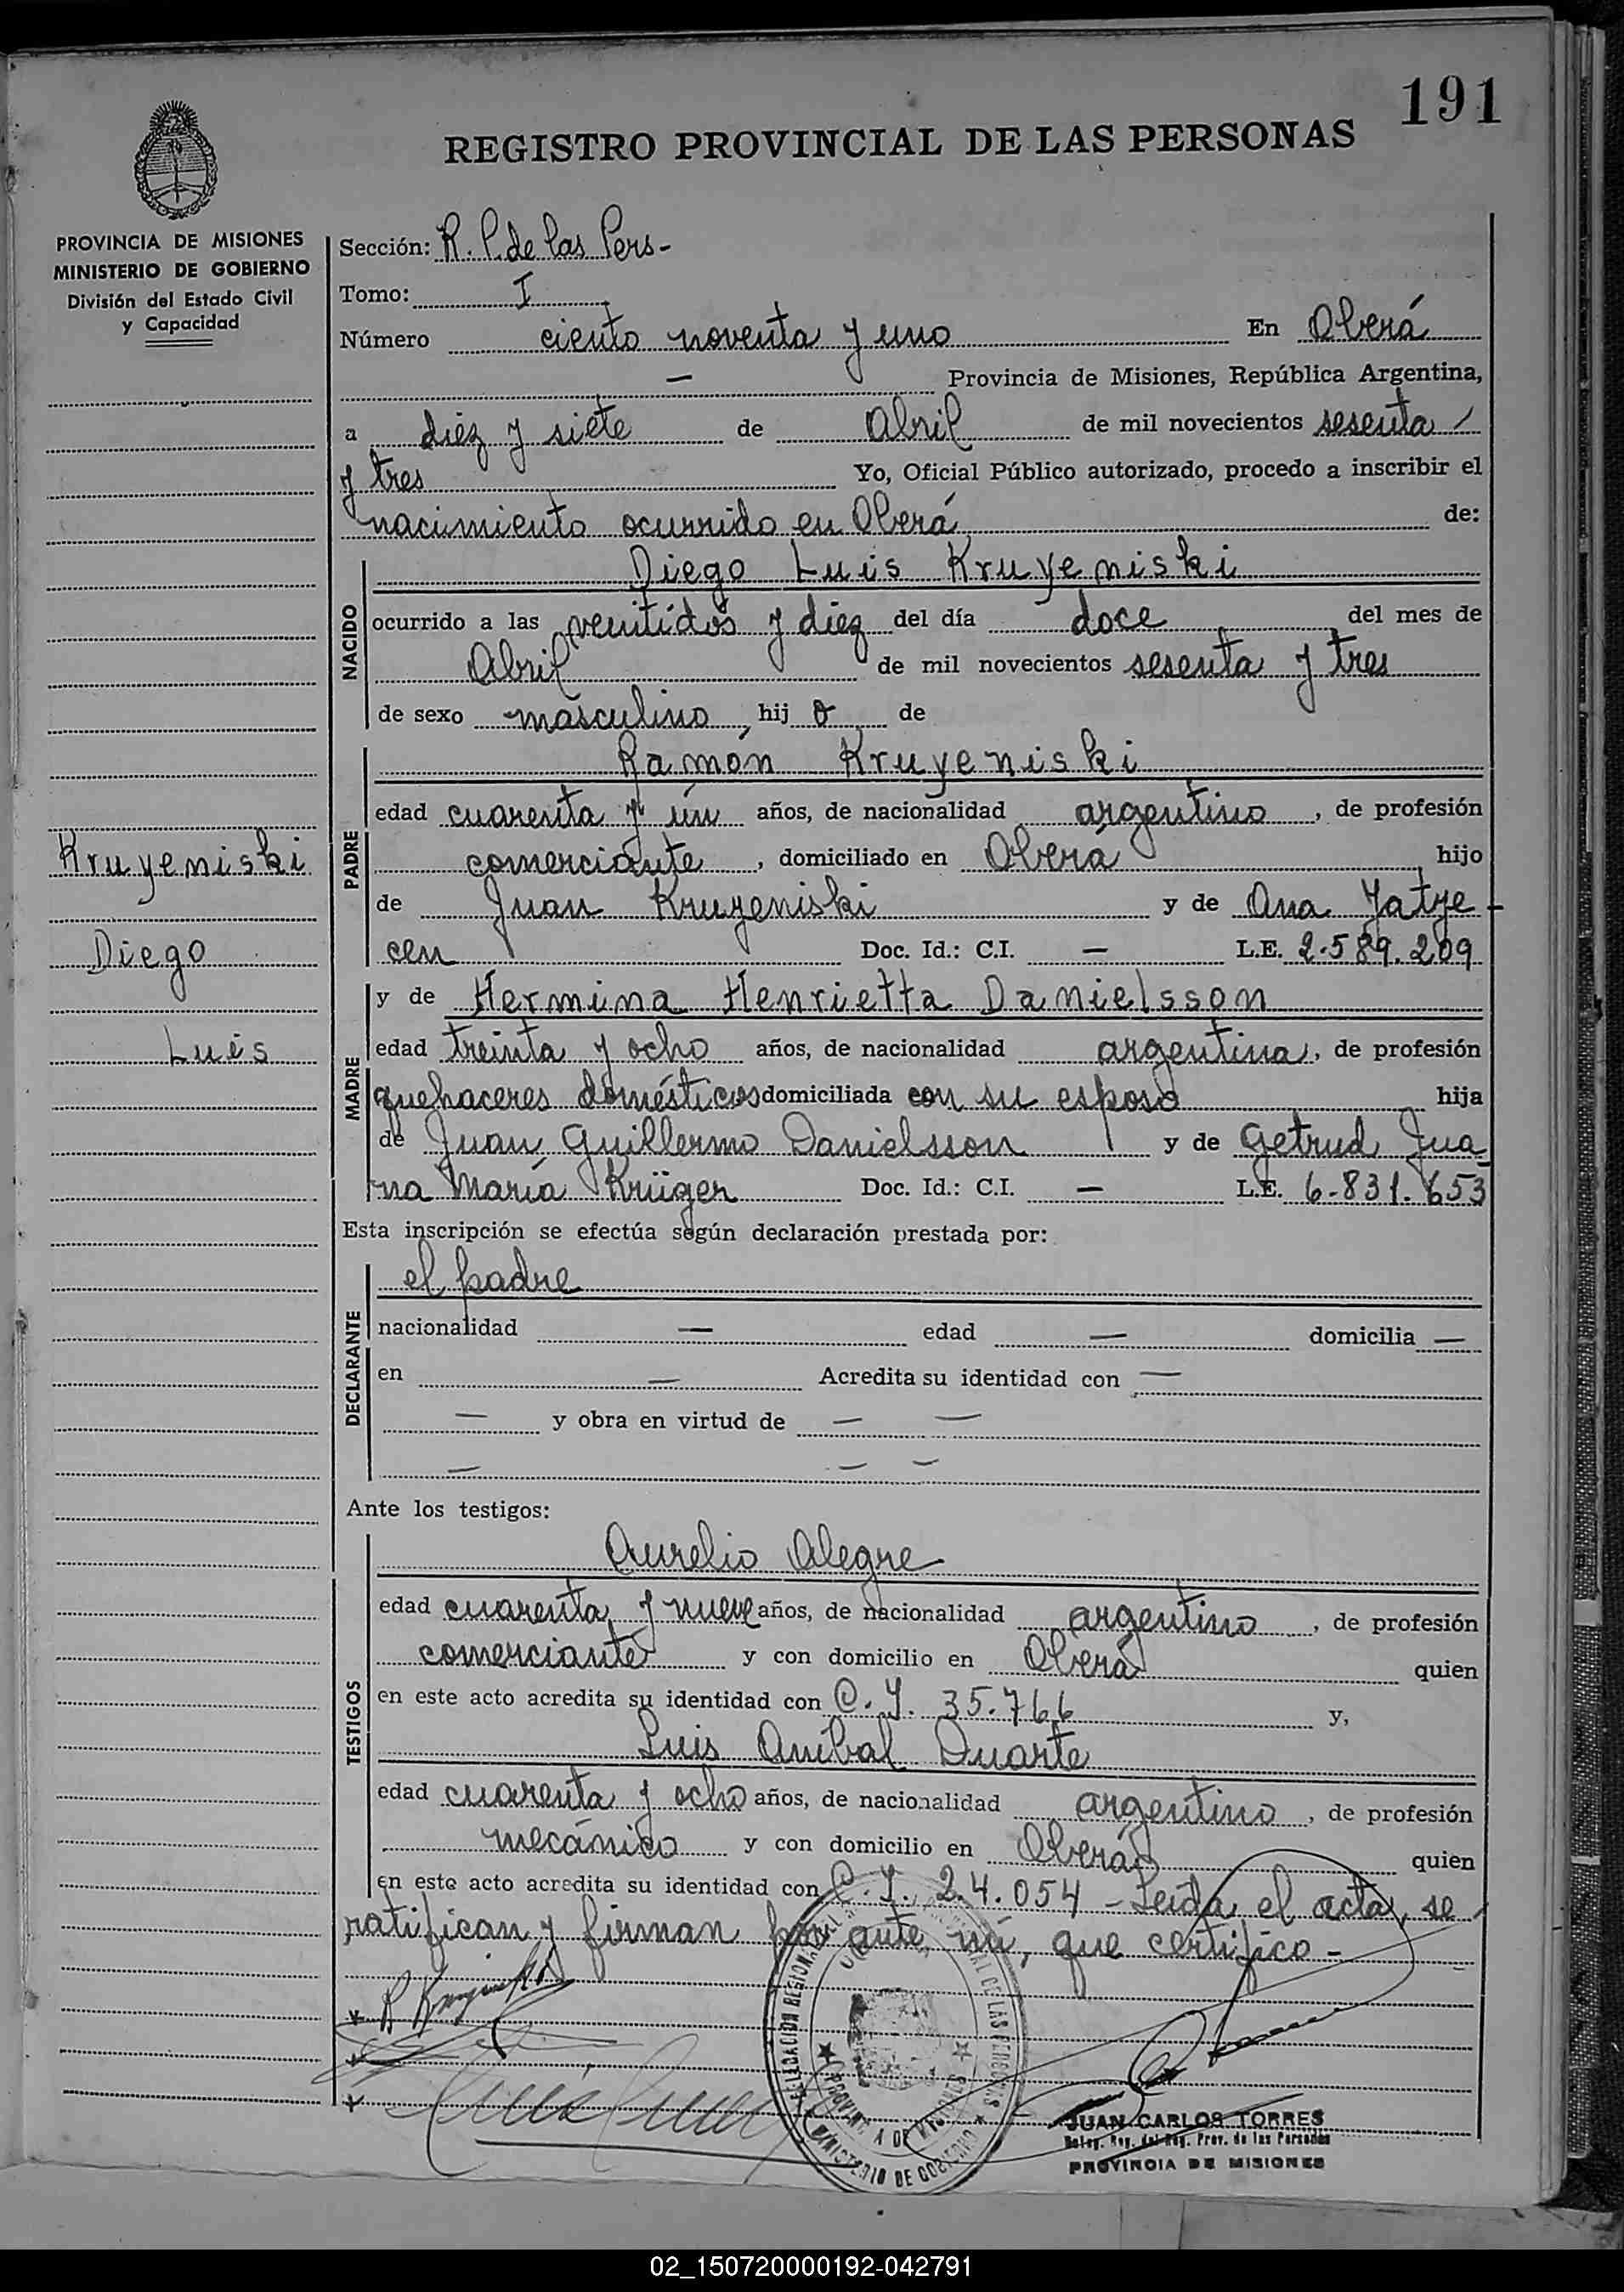 191
REGISTRO PROVINCIAL DE LAS PERSONAS
PROVINCIA DE MISIONES
MINISTERIO DE GOBIERNO
División del Estado Civil
y Capacidad
Kruyeniski
Diego
Luis
Sección: R. P. de las Pers-
Tomo: I
Número ciento noventa y uno En Oberá
— Provincia de Misiones, República Argentina,
a diez y siete de Abril de mil novecientos sesenta
y tres Yo, Oficial Público autorizado, procedo a inscribir el
nacimiento ocurrido en Oberá de:
NACIDO
Diego Luis Kruyeniski
ocurrido a las ventidos y diez del día doce del mes de
Abril de mil novecientos sesenta y tres
de sexo masculino, hij o de
PADRE
Ramón Kruyeniski
edad cuarenta y ún años, de nacionalidad argentino, de profesión
comerciante, domiciliado en Oberá hijo
de Juan Kruyeniski y de Ana Jatye-
cen Doc. Id.: C.I. — L.E. 2.589.209
MADRE
y de Hermina Henrietta Danielsson
edad treinta y ocho años, de nacionalidad argentina, de profesión
quehaceres domésticos domiciliada con su esposo hija
de Juan Guillermo Danielsson y de Getrud Jua-
na María Krüger Doc. Id.: C.I. — L.E. 6.831.653
Esta inscripción se efectúa según declaración prestada por:
DECLARANTE
el padre
nacionalidad — edad — domicilia —
en — Acredita su identidad con —
— y obra en virtud de — —
— — —
Ante los testigos:
TESTIGOS
Aurelio Alegre
edad cuarenta y nueve años, de nacionalidad argentino, de profesión
comerciante y con domicilio en Oberá quien
en este acto acredita su identidad con C.I. 35.766 y,
Luis Aníbal Duarte
edad cuarenta y ocho años, de nacionalidad argentino, de profesión
mecánico y con domicilio en Oberá quien
en este acto acredita su identidad con C.I. 2.4.054 - Leída el acta, se
ratifican y firman por ante, mí, que certifico -
R Kruyeniski
JUAN CARLOS TORRES
Deleg. Reg. del Reg. Prov. de las Personas
PROVINCIA DE MISIONES
MINISTERIO DE GOBIERNO
PROVINCIA DE MISIONES
02_150720000192-042791